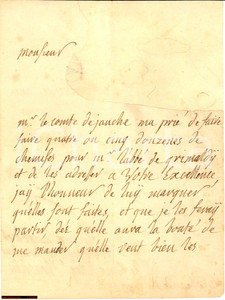 Monsieur
mr. le comte de jauche ma prié de faire
faire quatre ou cinq douzenes de
chemises pour mr. l'abbé de grimaldy
et de les adresser a Votre Excellence
jay l'honneur de luy marquer
qu'elles sont faites, et que je les ferey
partir dés qu'elle aura la bonté de
me mander qu'elle veut bien les